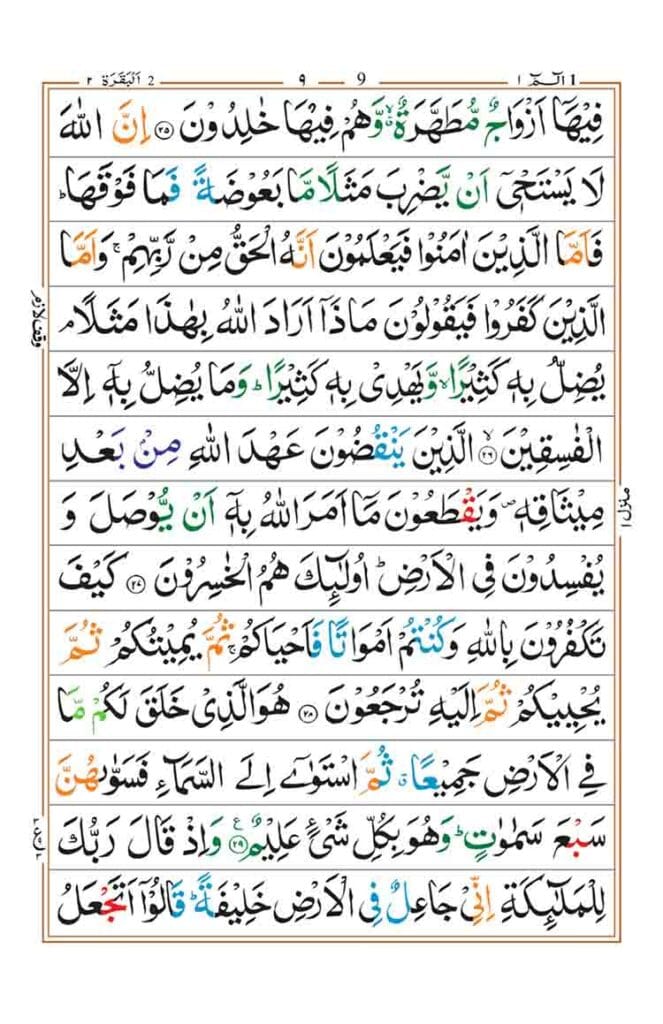 الٓمّٓ ١ 1 9 ٩ 2 اَلْبَقَرَة ٢
فِيْهَاۤ اَزْوَاجٌ مُّطَهَّرَةٌ ۙۗ وَّهُمْ فِيْهَا خٰلِدُوْنَ ﴿۲۵﴾ اِنَّ اللّٰهَ
لَا يَسْتَحْىٖۤ اَنْ يَّضْرِبَ مَثَلًا مَّا بَعُوْضَةً فَمَا فَوْقَهَا ؕ
فَاَمَّا الَّذِيْنَ اٰمَنُوْا فَيَعْلَمُوْنَ اَنَّهُ الْحَقُّ مِنْ رَّبِّهِمْ ۚ وَاَمَّا
الَّذِيْنَ كَفَرُوْا فَيَقُوْلُوْنَ مَاذَاۤ اَرَادَ اللّٰهُ بِهٰذَا مَثَلًا ۘ
وقف لازم
يُضِلُّ بِهٖ كَثِيْرًا ۙ وَّيَهْدِىْ بِهٖ كَثِيْرًا ؕ وَمَا يُضِلُّ بِهٖۤ اِلَّا
الْفٰسِقِيْنَ ۙ ﴿۲۶﴾ الَّذِيْنَ يَنْقُضُوْنَ عَهْدَ اللّٰهِ مِنْۢ بَعْدِ
مِيْثَاقِهٖ ۪ وَيَقْطَعُوْنَ مَاۤ اَمَرَ اللّٰهُ بِهٖۤ اَنْ يُّوْصَلَ وَ
منزل ١
يُفْسِدُوْنَ فِى الْاَرْضِ ؕ اُولٰٓئِكَ هُمُ الْخٰسِرُوْنَ ﴿۲۷﴾ كَيْفَ
تَكْفُرُوْنَ بِاللّٰهِ وَكُنْتُمْ اَمْوَاتًا فَاَحْيَاكُمْ ۚ ثُمَّ يُمِيْتُكُمْ ثُمَّ
يُحْيِيْكُمْ ثُمَّ اِلَيْهِ تُرْجَعُوْنَ ﴿۲۸﴾ هُوَ الَّذِىْ خَلَقَ لَكُمْ مَّا
فِى الْاَرْضِ جَمِيْعًا ۗ ثُمَّ اسْتَوٰٓى اِلَى السَّمَآءِ فَسَوّٰىهُنَّ
سَبْعَ سَمٰوٰتٍ ؕ وَهُوَ بِكُلِّ شَىْءٍ عَلِيْمٌ ﴿۲۹﴾ ع وَاِذْ قَالَ رَبُّكَ
لِلْمَلٰٓئِكَةِ اِنِّىْ جَاعِلٌ فِى الْاَرْضِ خَلِيْفَةً ؕ قَالُوْۤا اَتَجْعَلُ